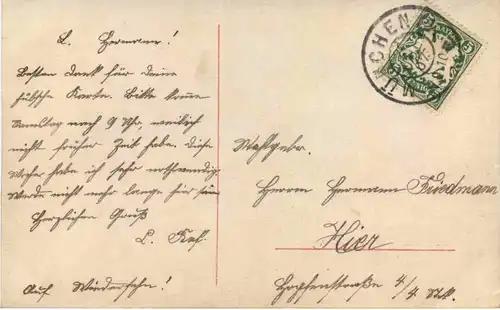 L. Hermann!
Besten Dank für deine
hübsche Karte. Bitte komme
Samstag nach 9 Uhr, weil ich
nicht früher Zeit habe. Diese
Woche habe ich sehr nothwendig.
Werde nicht mehr lange hier sein
Herzlichen Gruß
L.
Auf Wiedersehn!
MÜNCHEN
5 5
BAYERN
Wohlgebr.
Herrn Hermann Friedmann
Hier
Hopfenstraße 4/4 Stk.